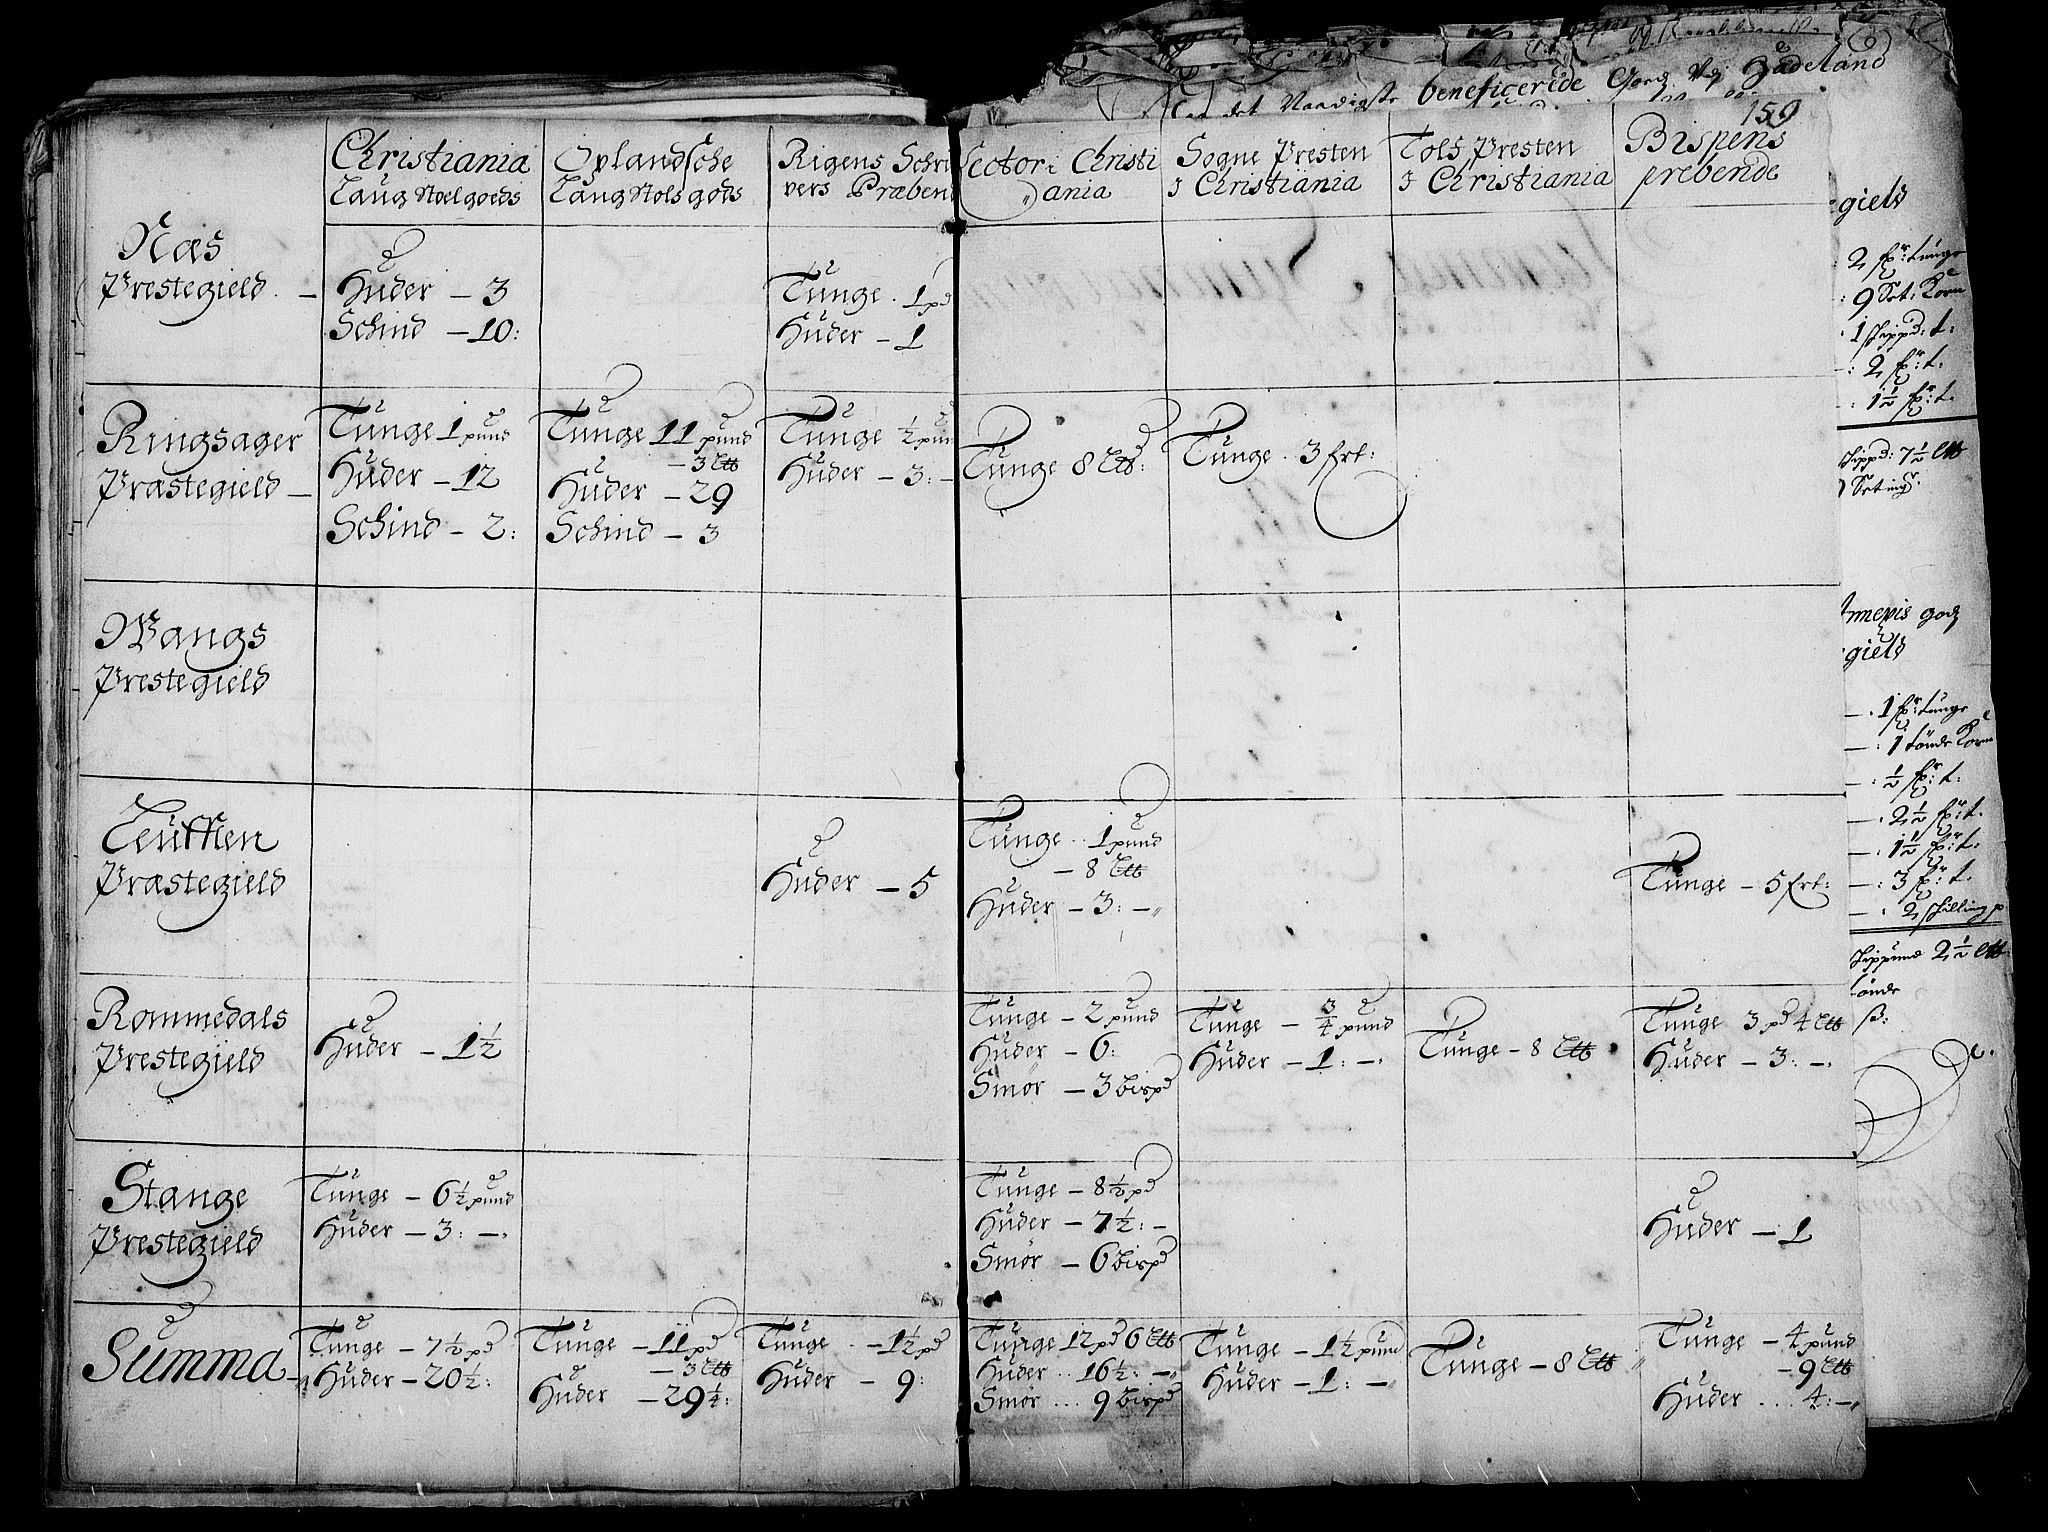 beneficerede
Hadeland
159
Christiania
Laug Stoelgoeds
Oplandsche
Laug Stols gods
Rigens Schri
vers Præben
Lector i Christi
"ania
Sogne Presten
J Christiania
Tols Presten
J Christiania
Bispens
prebende
Næs
Prestegield. —
Huder — 3
Schind — 10:
Tunge . 1 pd
Huder — 1
Ringsager
Præstegield —
Tunge 1 pund
Huder — 12
Schind — 2:
Tunge 11 pund
— 3 Ltt
Huder — 29
Schind — 3
Tunge ½ pun
Huder — 3: —
Tunge 8 Ltt:
Tunge . 3 frt:
Wangs
Prestegield
Leufften
Præstegield
Huder — 5
Tunge .. 1 pund
— 8 Ltt
Huder — 3: —"
Tunge — 5 frt:
Rommedals
Prestegield
Huder — 1½
Tunge — 2 pund
Huder — 6:
Smør — 3 bispd
Tunge — ¾ pund
Huder — 1: —.
Tunge — 8 Ltt
Tunge 3 pd 4 Ltt
Huder — 3: —.
Stange
Prestegield
Tunge — 6½ pund
Huder — 3: —.
Tunge — 8½ pd
Huder — 7½: —
Smør — 6 Bispd
Huder — 1
Summa —"
Tunge — 7½ pd
Huder — 20½:
Tunge — 11 pd
— 3 Ltt
Huder — 29¼:
Tunge . — 1½ pd
Huder — 9:
Tunge 12 pd 6 Ltt
Huder .. 16½: —"
Smør ... 9 Bispd
Tunge — 1½ pund
Huder — 1: —"
Tunge — 8 Ltt "
Tunge — 4 pund
— 9 Ltt
Huder .... 4: —"
gield
2 fr: tunge
: 9 Set: Korn
. 1 schippd: t:
: 2 fr: t.
: 1½ fr: t.
schippd: 7½ Ltt
Setings
Annexis godz
gield
— . 1 fr: tunge
— : 1 tønde Korn
— : ½ fr: t:
— . 2½ fr: t.
— : 1½ fr: t:
— : 3 fr: t.
— . 2 schilling p
schippund 2½ Ltt
tønde
ß: